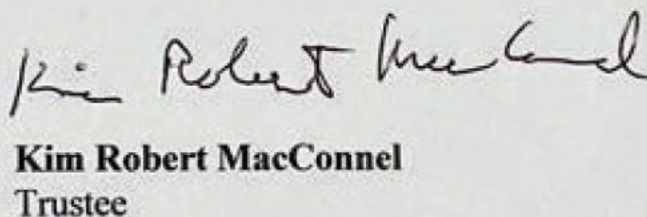 Kim Robert MacConnel
Kim Robert MacConnel
Trustee